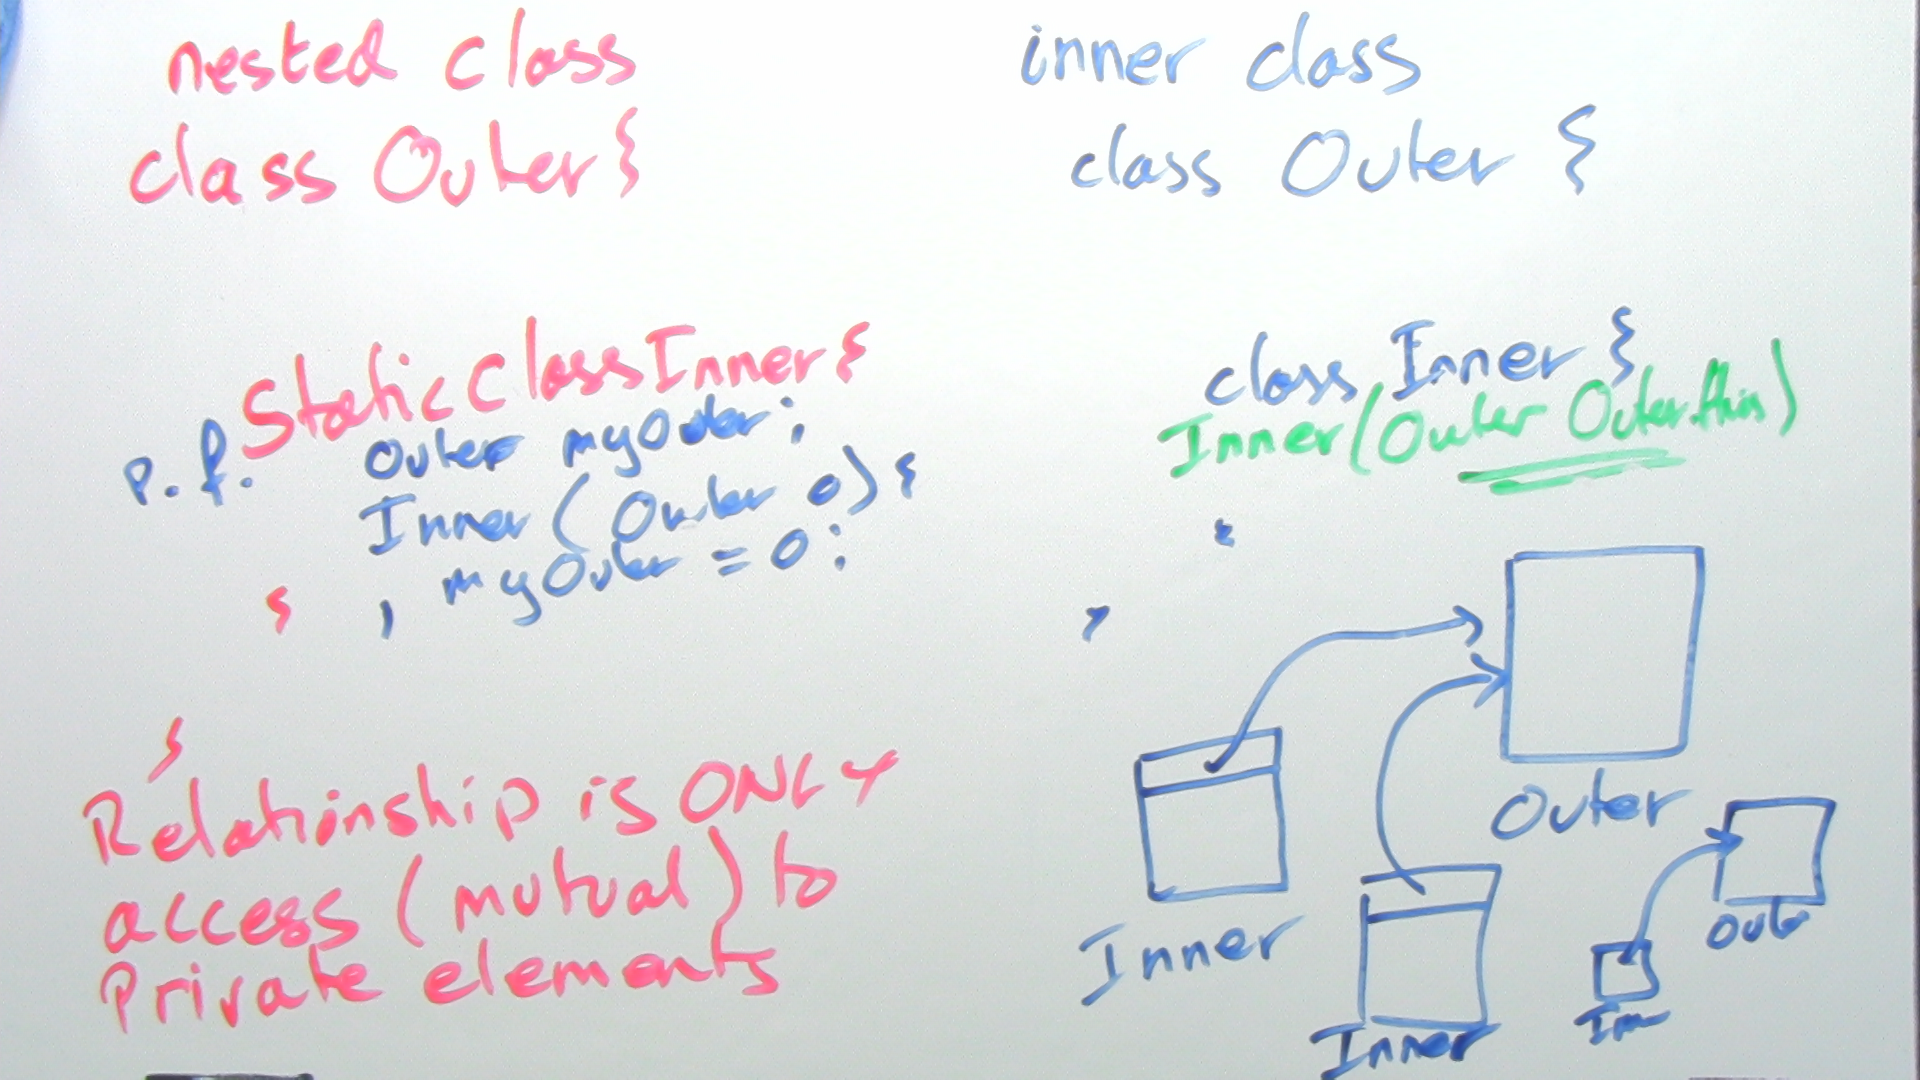 nested class
class Outer {
Static Class Inner {
p. f. Outer myOuter;
Inner ( Outer o) {
myOuter = o;
}
}
}
Relationship is ONLY
access (mutual) to
Private elements
inner class
class Outer {
class Inner {
Inner (Outer Outer.this)
}
}
Outer
Inner
Inner
Oute